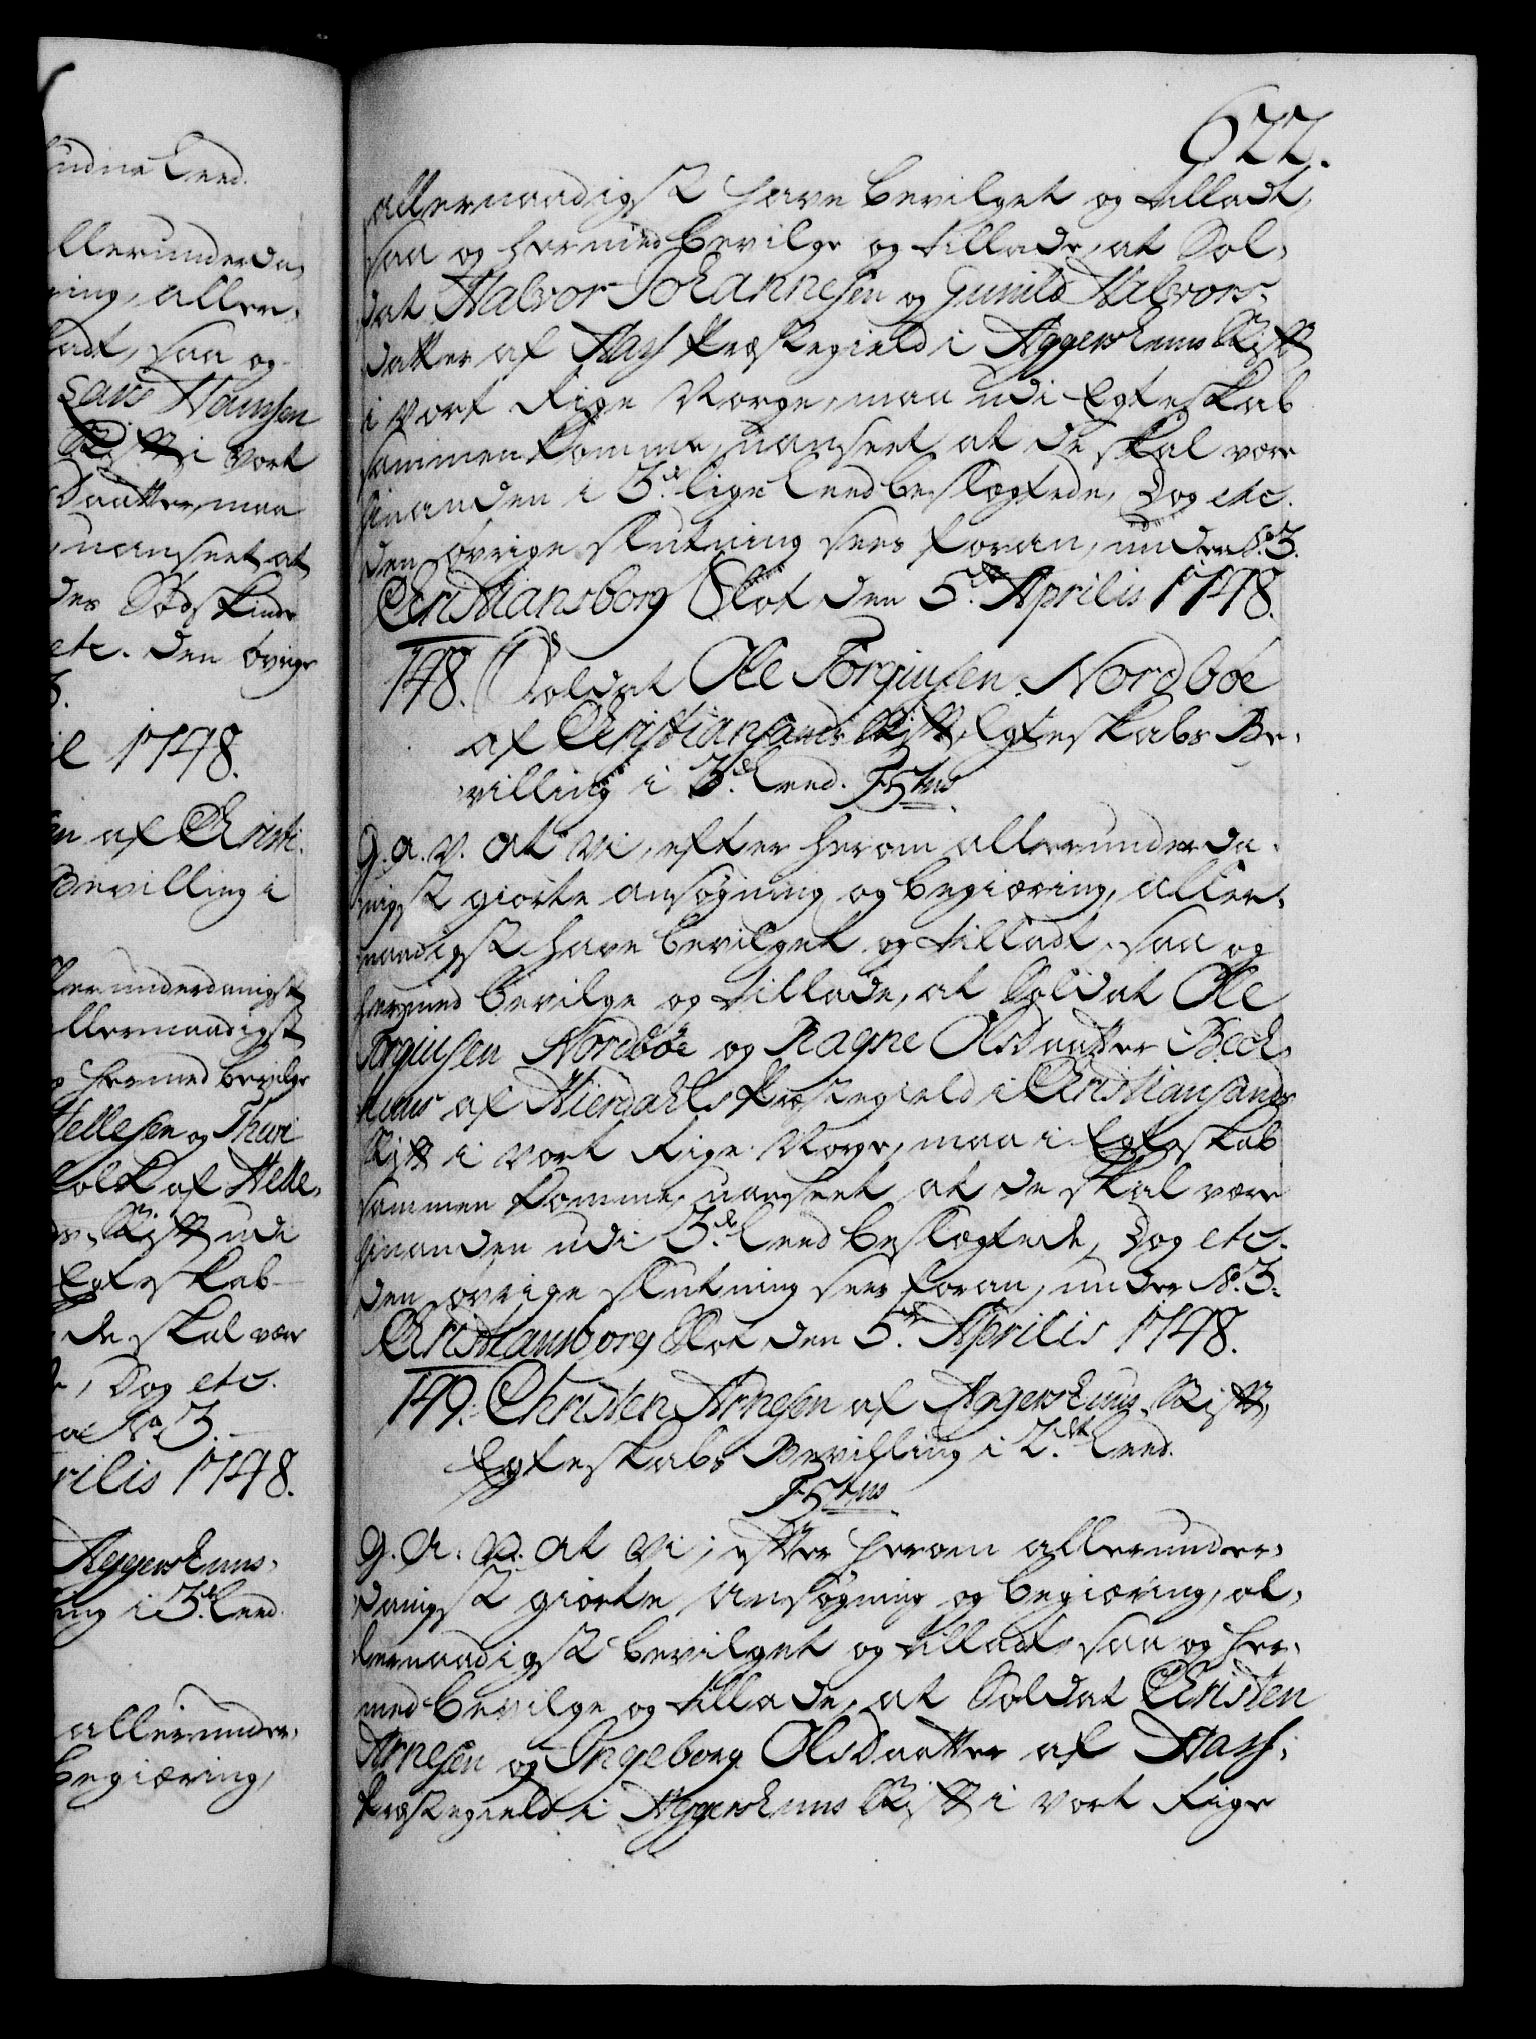 622.
allernaadigst have bevilget og tilladt,
saa og hermed bevilge og tillade, at Sol-
dat Halvor Johannesen og Gunild Halvors-
datter af Aas Præstegield i Aggershuus Stift
i vort Rige Norge, maa udi Egteskab
sammen komme, uanseet at de skal være
hinanden i 3de lige Leed beslægtede, Dog etc.
den øvrige slutning sees foran, under No. 3.
Christiansborg Slot den 5te Aprilis 1748.
148. Soldat Ole Torgiusen Nordbøe
af Christiansands Stift, Egteskabs Be-
villing i 3de Leed. F5tus
G. A. V. at vi, efter herom allerunderda-
nigst giorte ansøgning og begiæring, aller-
naadigst have bevilget og tilladt, saa og
hermed bevilge og tillade, at Soldat Ole
Torgiusen Nordbøe og Ragne Olsdaatter Bech-
huus af Hierdahls Præstegield i Christiansands
Stift i vort Rige Norge, maa i Egteskab
sammen komme, uanseet at de skal være
hinanden udi 3de Leed beslægtede, Dog etc.
den øvrige slutning sees foran, under No. 3.
Christiansborg Slot den 5te Aprilis 1748.
149. Christen Arnesen af Aggershuus Stift,
Egteskabs Bevilling i 2det Leed.
F5tus
G. A. V. at vi, efter herom allerunder-
danigst giorte ansøgning og begiæring, al-
lernaadigst bevilget og tilladt, saa og her-
med bevilge og tillade, at Soldat Christen
Arnesen og Ingeborg Olsdaatter af Aas
Præstegield i Aggershuus Stift i vort Rige